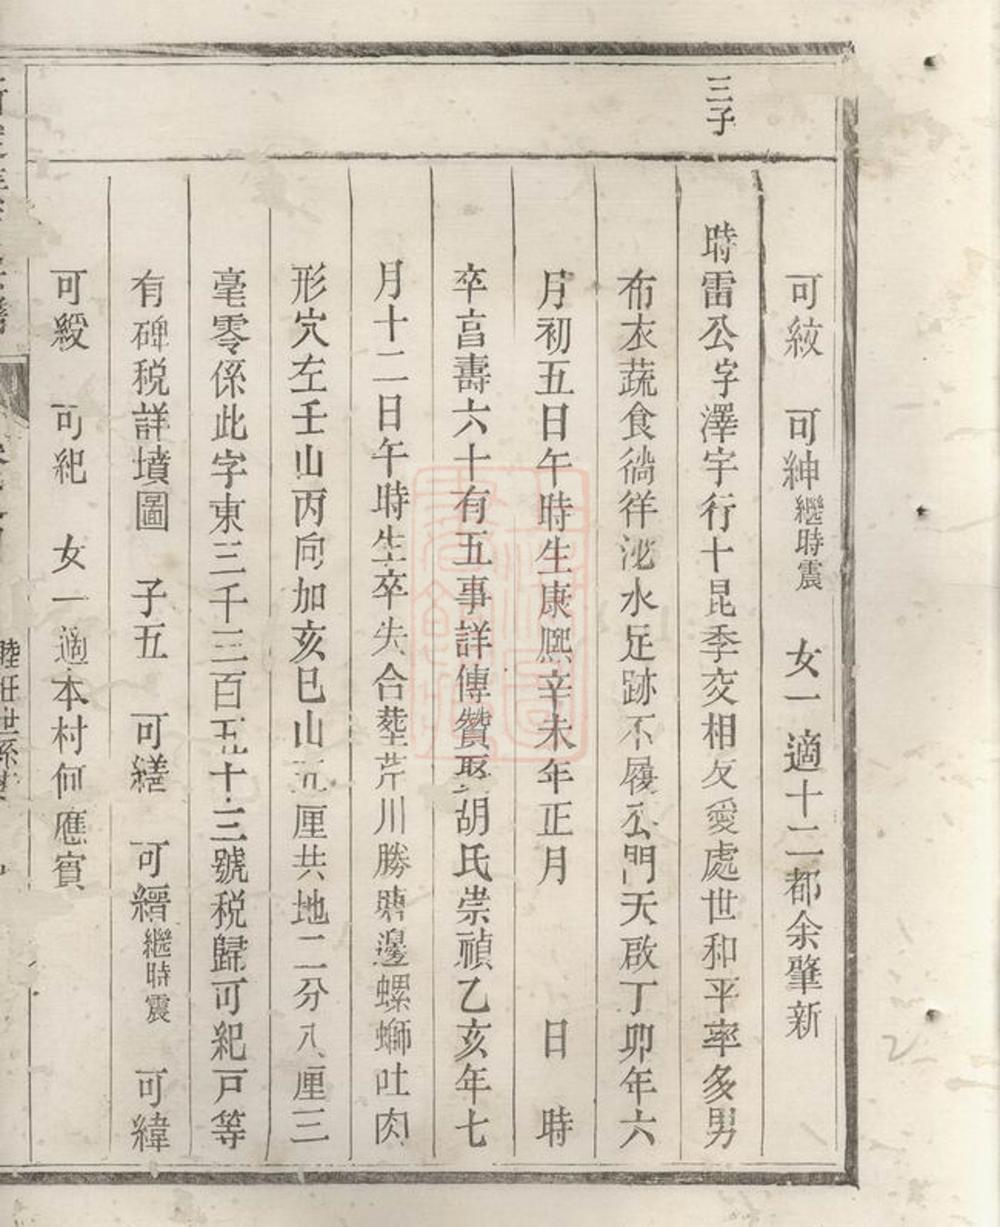 三子
可紋　可紳繼時震　女一適十二都余肇新
時雷公字澤宇行十昆季交相友愛處世和平率多男
布衣蔬食徜徉泌水足跡不履公門天啟丁卯年六
月初五日午時生康熙辛未年正月　日　時
卒享壽六十有五事詳傳贊娶胡氏崇禎乙亥年七
月十二日午時生卒失合塟芹川勝聘邊螺螄吐肉
形穴左壬山丙向加亥巳山五厘共地二分八厘三
毫零係此字東三千三百五十三號税歸可紀戸等
有碑税詳墳圖　子五　可繕　可縉繼時震　可緯
可綬　可紀　女一適本村何應賓